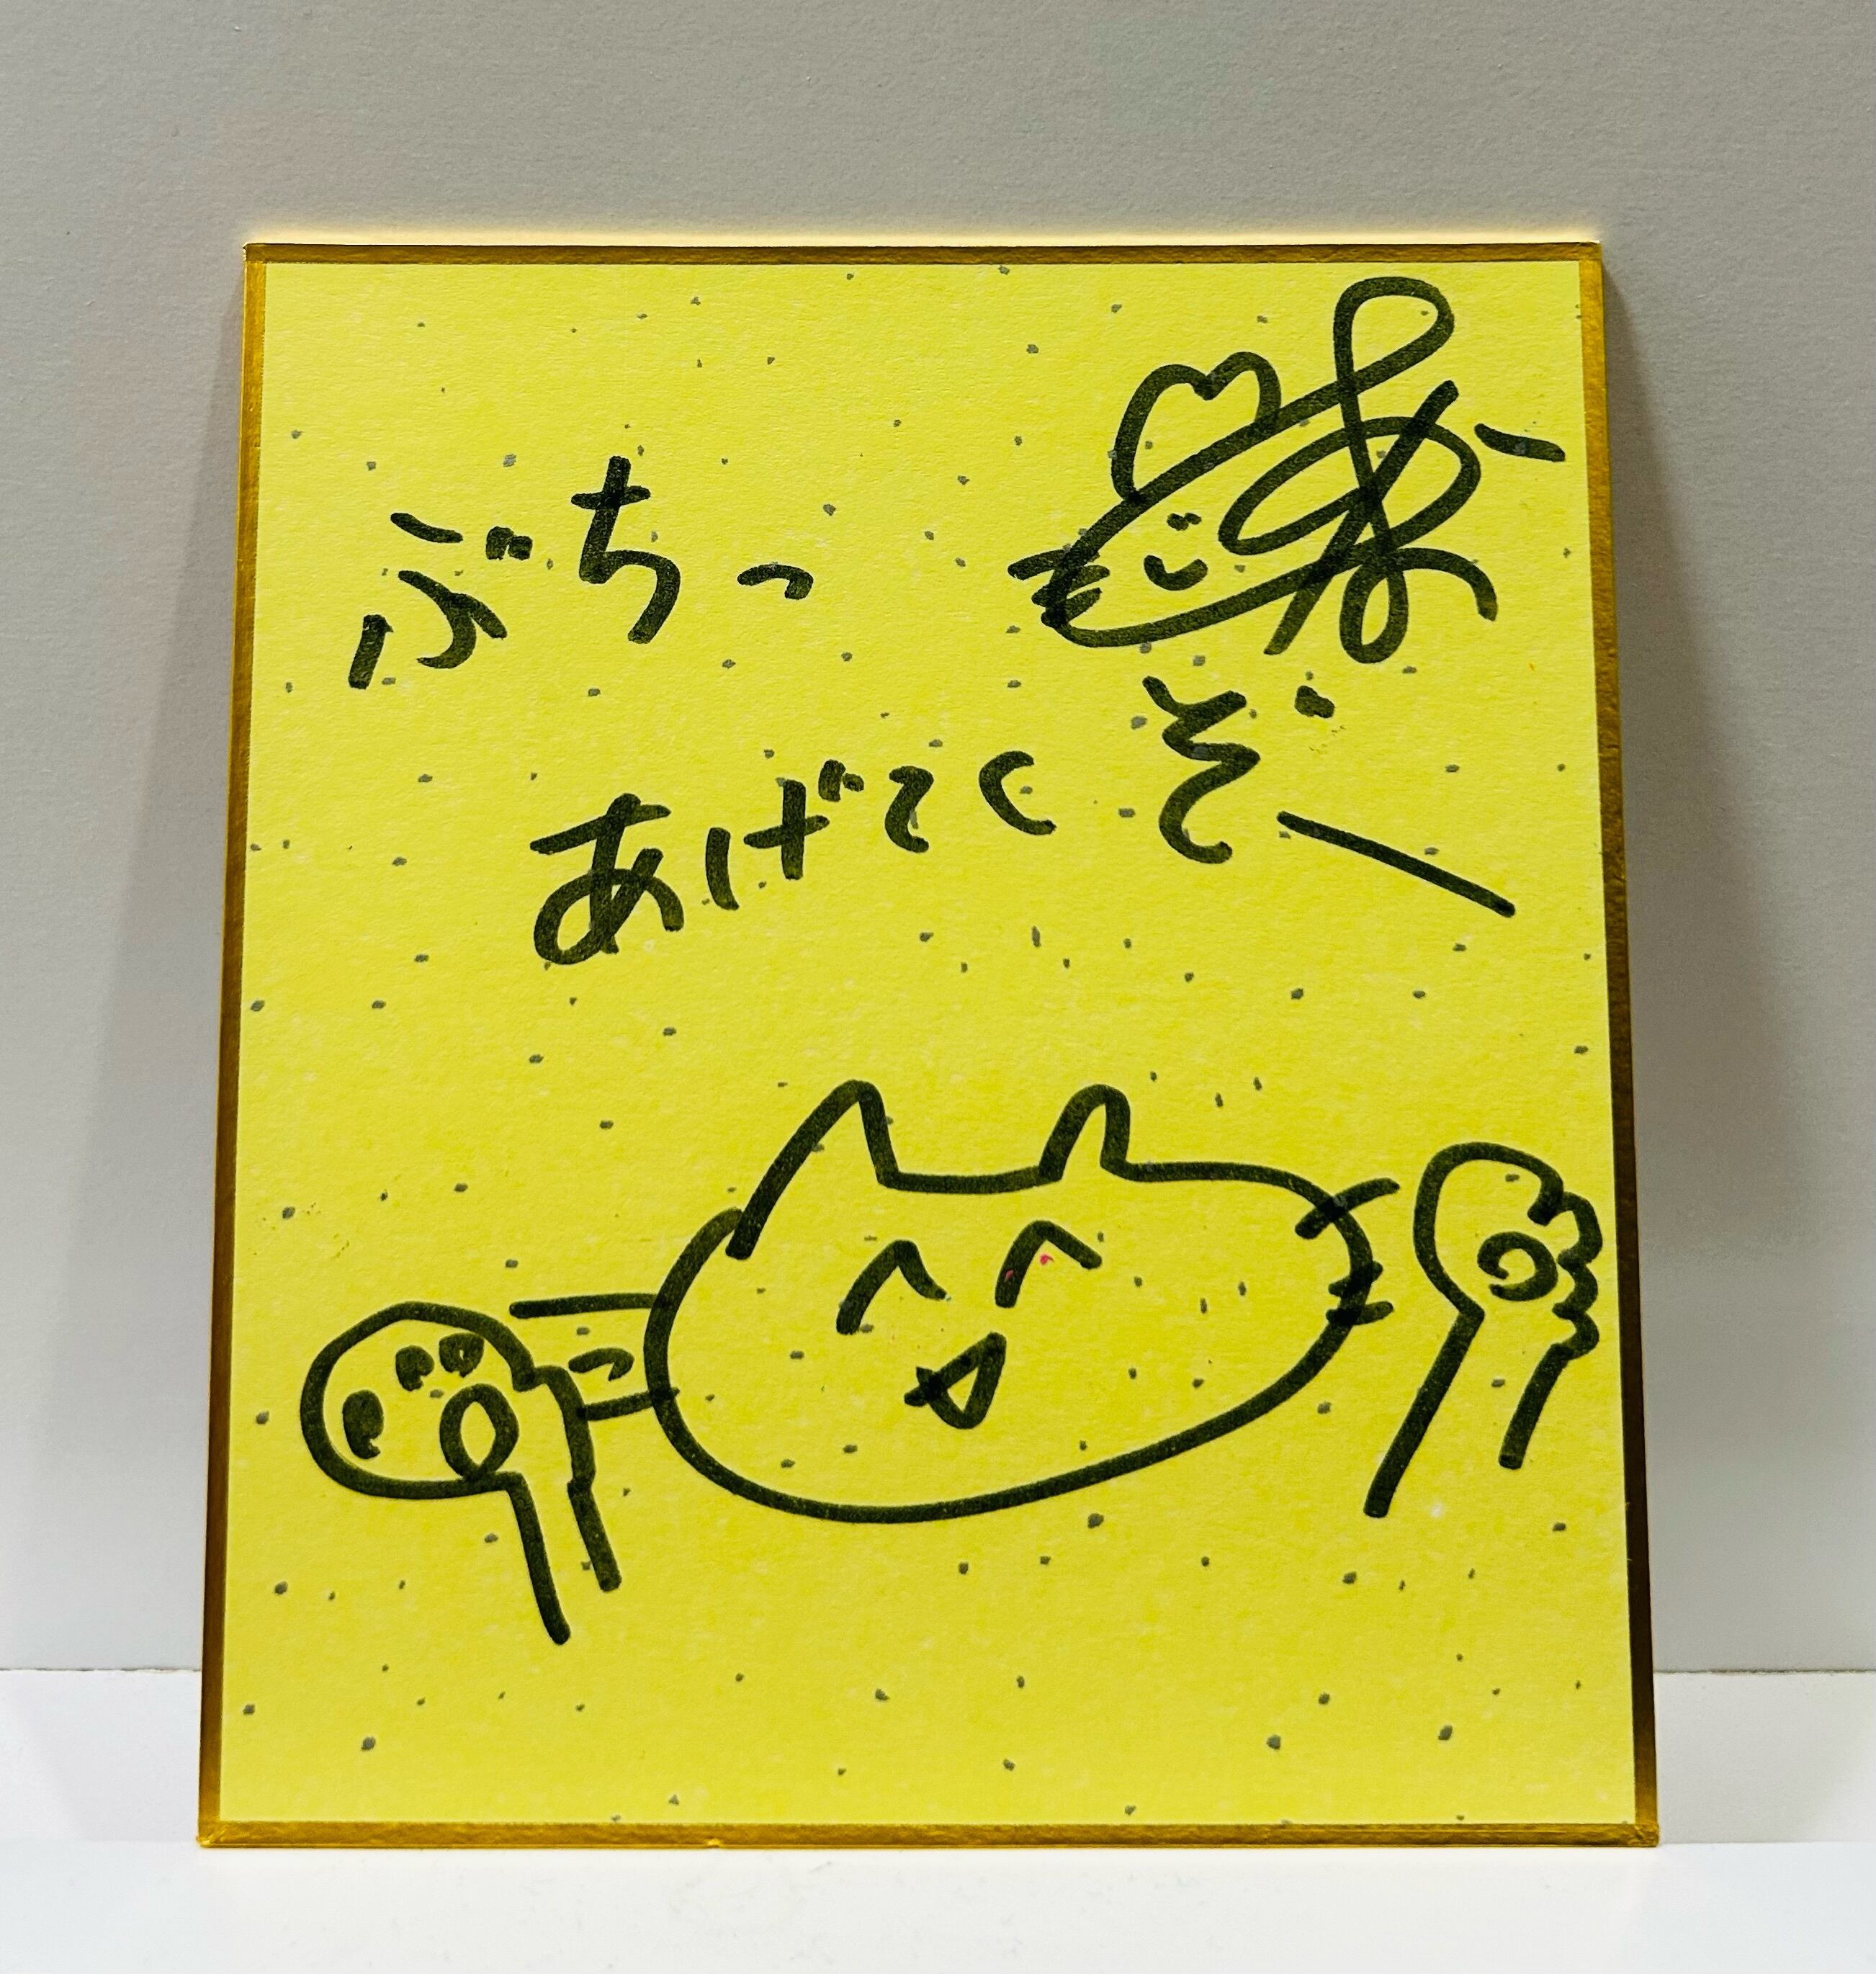 ぶちっ
あげてくぞー